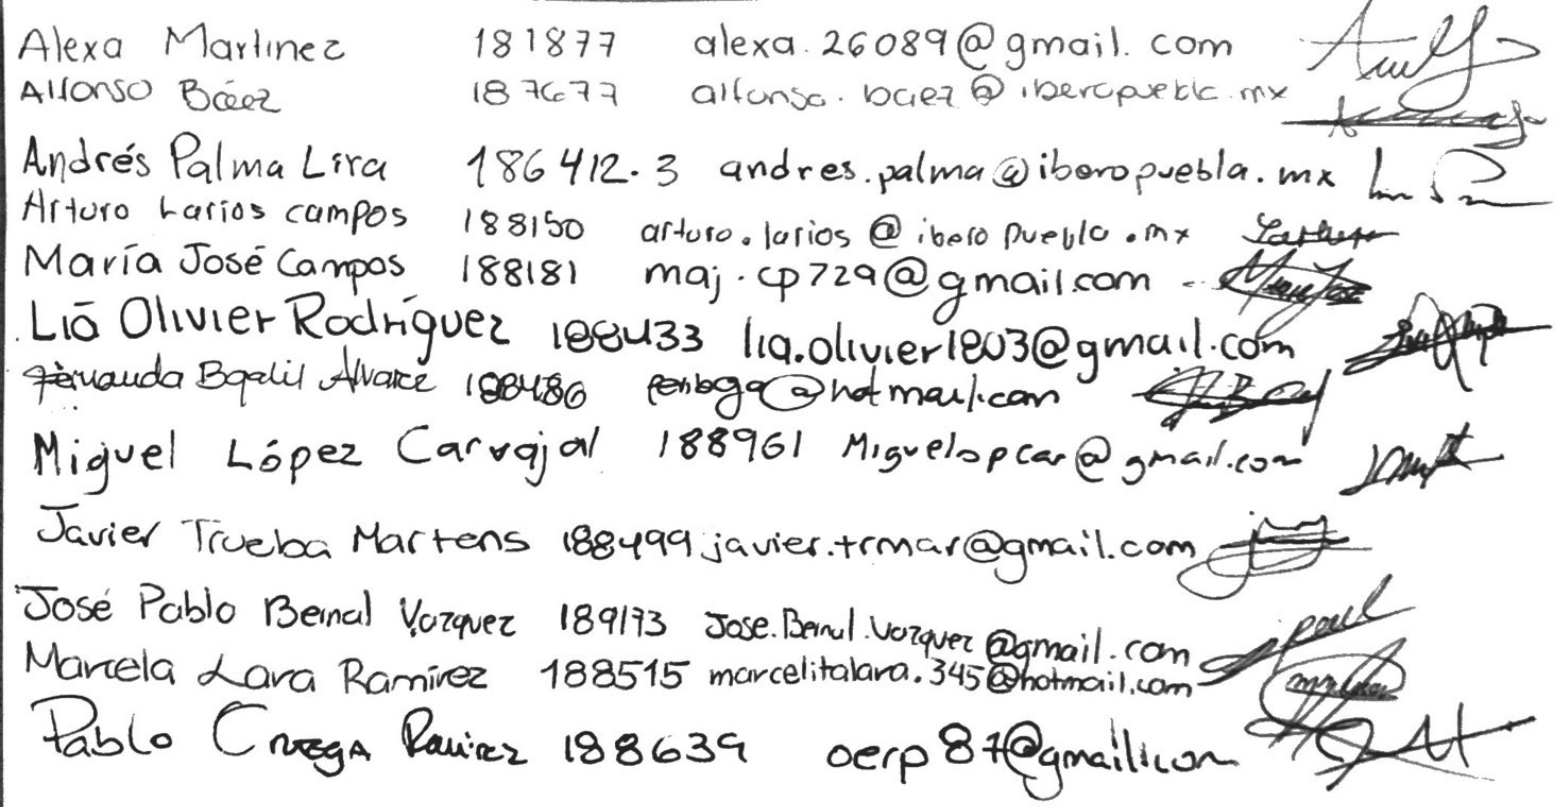 Alexa Martinez 181877 alexa.26089@gmail.com
Alfonso Báez 187677 alfonso.baez@iberopuebla.mx
Andrés Palma Lira 186412.3 andres.palma@iberopuebla.mx
Arturo Larios campos 188150 arturo.larios@iberopuebla.mx
María José Campos 188181 maj.cp729@gmail.com
Lia Olivier Rodríguez 188433 lia.olivier1803@gmail.com
Fernanda Bgalil Alvarez 188486 ferbga@hotmail.com
Miguel López Carvajal 188961 Miguelopcar@gmail.com
Javier Trueba Martens 188499 javier.trmar@gmail.com
José Pablo Bernal Vazquez 189173 Jose.Bernal.Vazquez@gmail.com
Marcela Lara Ramírez 188515 marcelitalara.345@hotmail.com
Pablo Ramirez 188639 oerp87@gmail.com